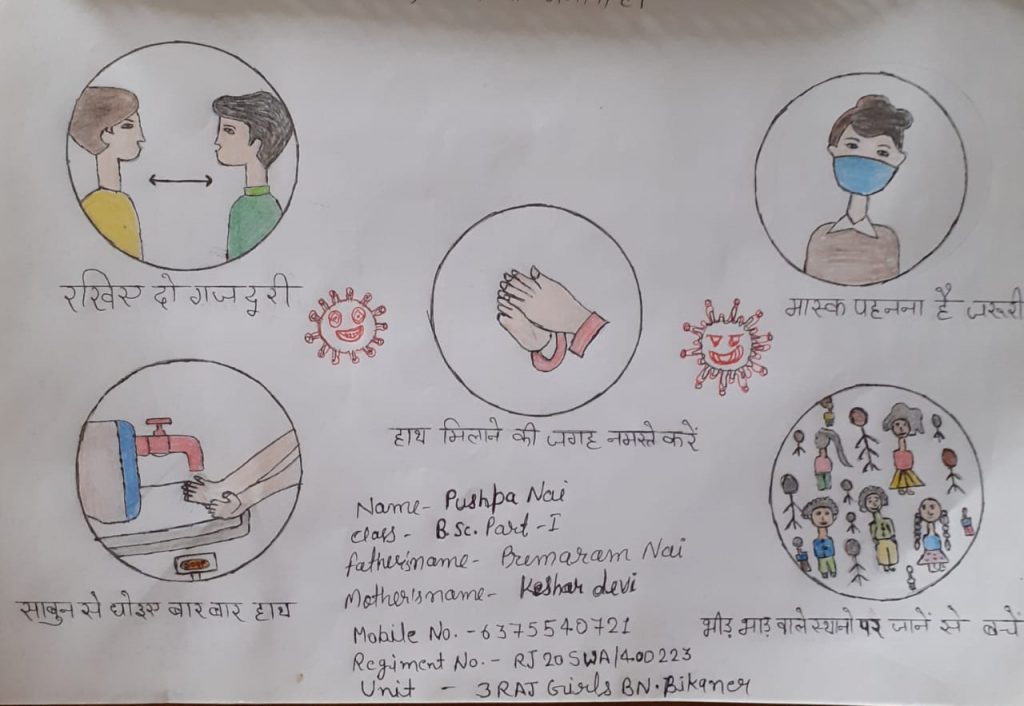 रखिए दो गज दूरी
मास्क पहनना है जरूरी
हाथ मिलाने की जगह नमस्ते करें
साबुन से धोइए बार बार हाथ
भीड़ भाड़ वाले स्थानो पर जानें से बचें
Name- Pushpa Nai
class - B.Sc. Part -I
father'sname- Bremaram Nai
Mother'sname- Keshar devi
Mobile No. -6375540721
Regiment No. - RJ20SWA/400223
Unit - 3RAJ Girls BN. Bikaner